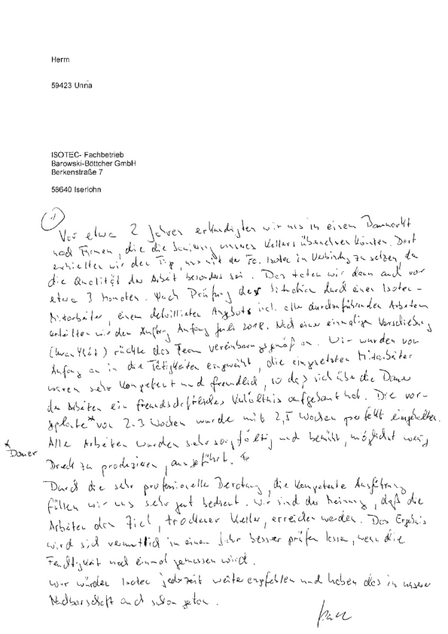 Herrn
59423 Unna
ISOTEC- Fachbetrieb
Barowski-Böttcher GmbH
Berkenstraße 7
58640 Iserlohn
Vor etwa 2 Jahren erkundigten wir uns in einem Baumarkt
nach Firmen, die die Sanierung unseres Kellers übernehmen könnten. Dort
erhielten wir den Tip, uns mit der Fa. Isotec in Verbindung zu setzen, da
die Qualität der Arbeit besonders sei. Das taten wir dann auch vor
etwa 3 Monaten. Nach Prüfung der Situation durch einen Isotec-
Mitarbeiter, einem detaillierten Angebots incl. aller durchzuführenden Arbeiten
erhielten wir den Anfang 2018. Nach einer einmaligen Verschiebung
(Krankheit) rückte das Team vereinbarungsgemäß an. Wir wurden von
Anfang an in die Tätigkeiten eingeweiht, die eingesetzten Mitarbeiter
waren sehr kompetent und freundlich, so daß sich über die Dauer
der Arbeiten ein freundschaftliches Verhältnis aufgebaut hat. Die vor-
geplante* von 2-3 Wochen wurde mit 2,5 Wochen perfekt eingehalten.
* Dauer
Alle Arbeiten wurden sehr sorgfältig und bemüht, möglichst wenig
Dreck zu produzieren, ausgeführt.
Durch die sehr professionelle Beratung, die kompetente Ausführung
fühlen wir uns sehr gut betreut. Wir sind der Meinung, daß die
Arbeiten den Ziel, trockener Keller, erreichen werden. Das Ergebnis
wird sich vermutlich in einem Jahr besser prüfen lassen, wenn die
Feuchtigkeit noch einmal gemessen wird.
Wir würden Isotec jederzeit weiterempfehlen und haben das in unserer
Nachbarschaft auch schon getan.